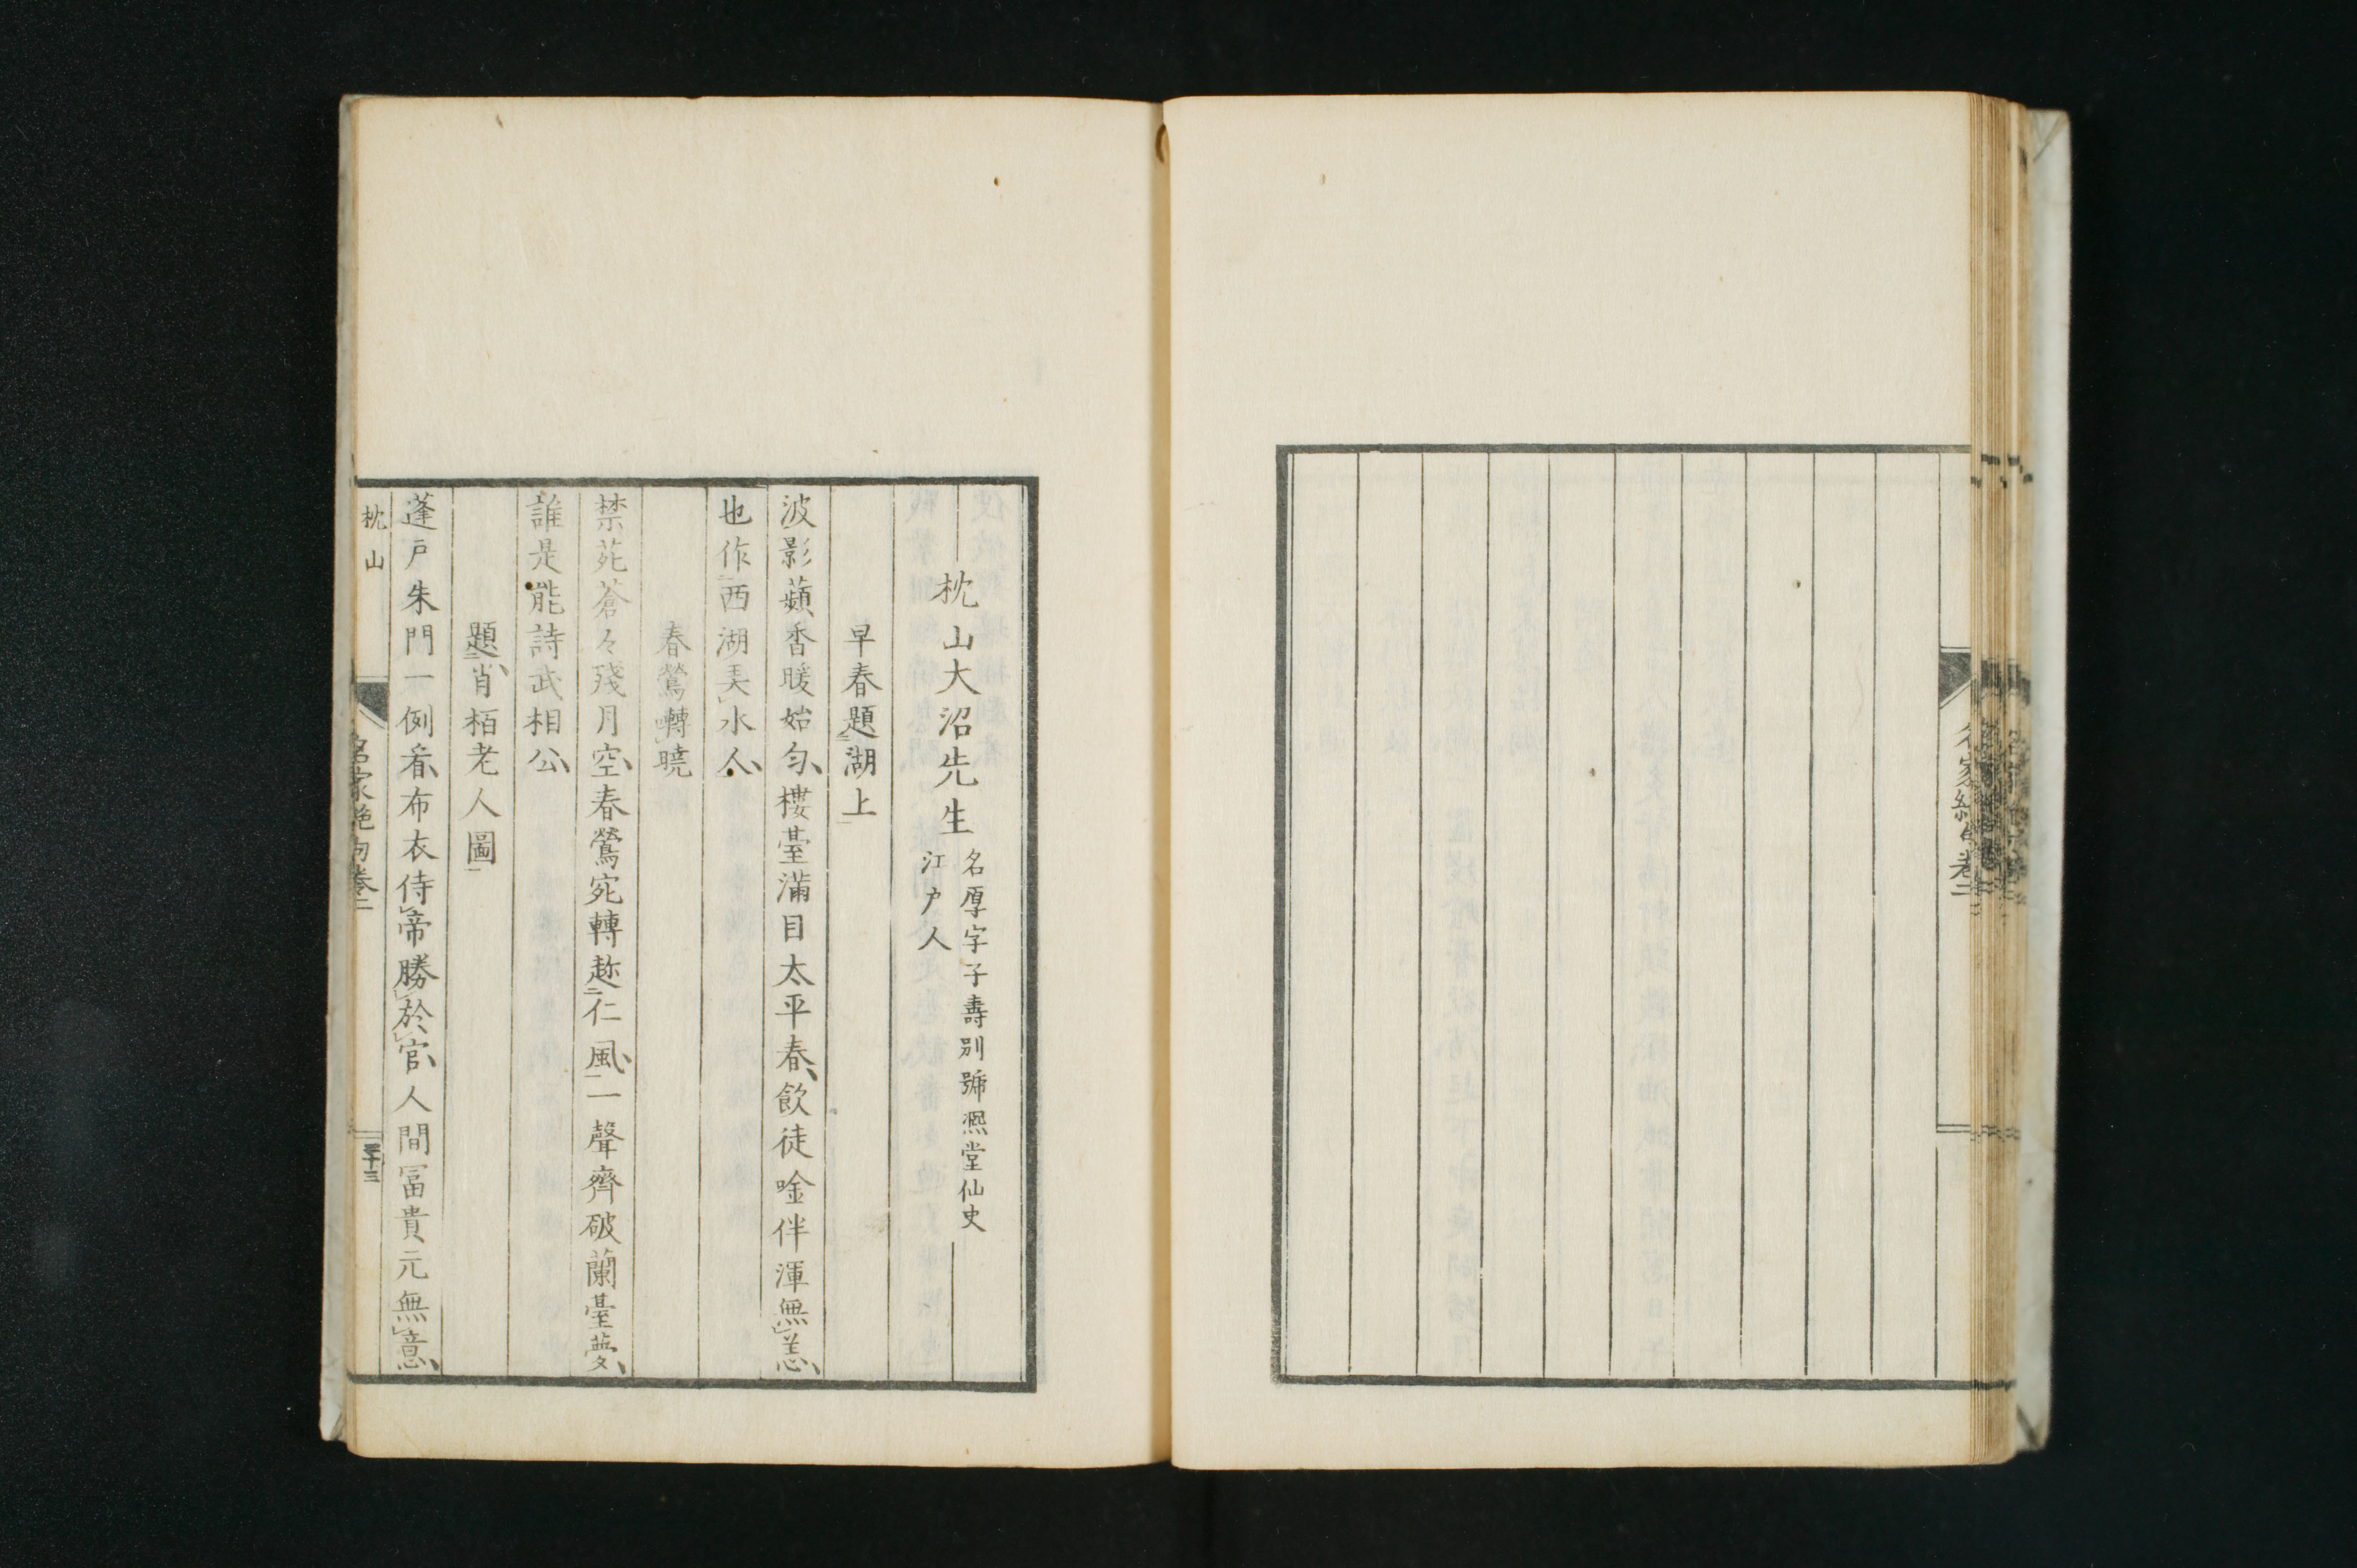 名家絶句卷二
枕山大沼先生
名厚字子壽別號熙堂仙史
江戸人
早春題湖上
波影蘋香暖始匀樓臺滿目太平春飲徒唫伴渾無恙
也作西湖美水人
春鶯囀曉
禁苑蒼々殘月空春鶯宛轉趂仁風一聲齊破蘭臺夢
誰是能詩武相公
題肖栢老人圖
蓬戸朱門一例看布衣侍帝勝於官人間冨貴元無意
枕山
名家絶句卷二
三十三